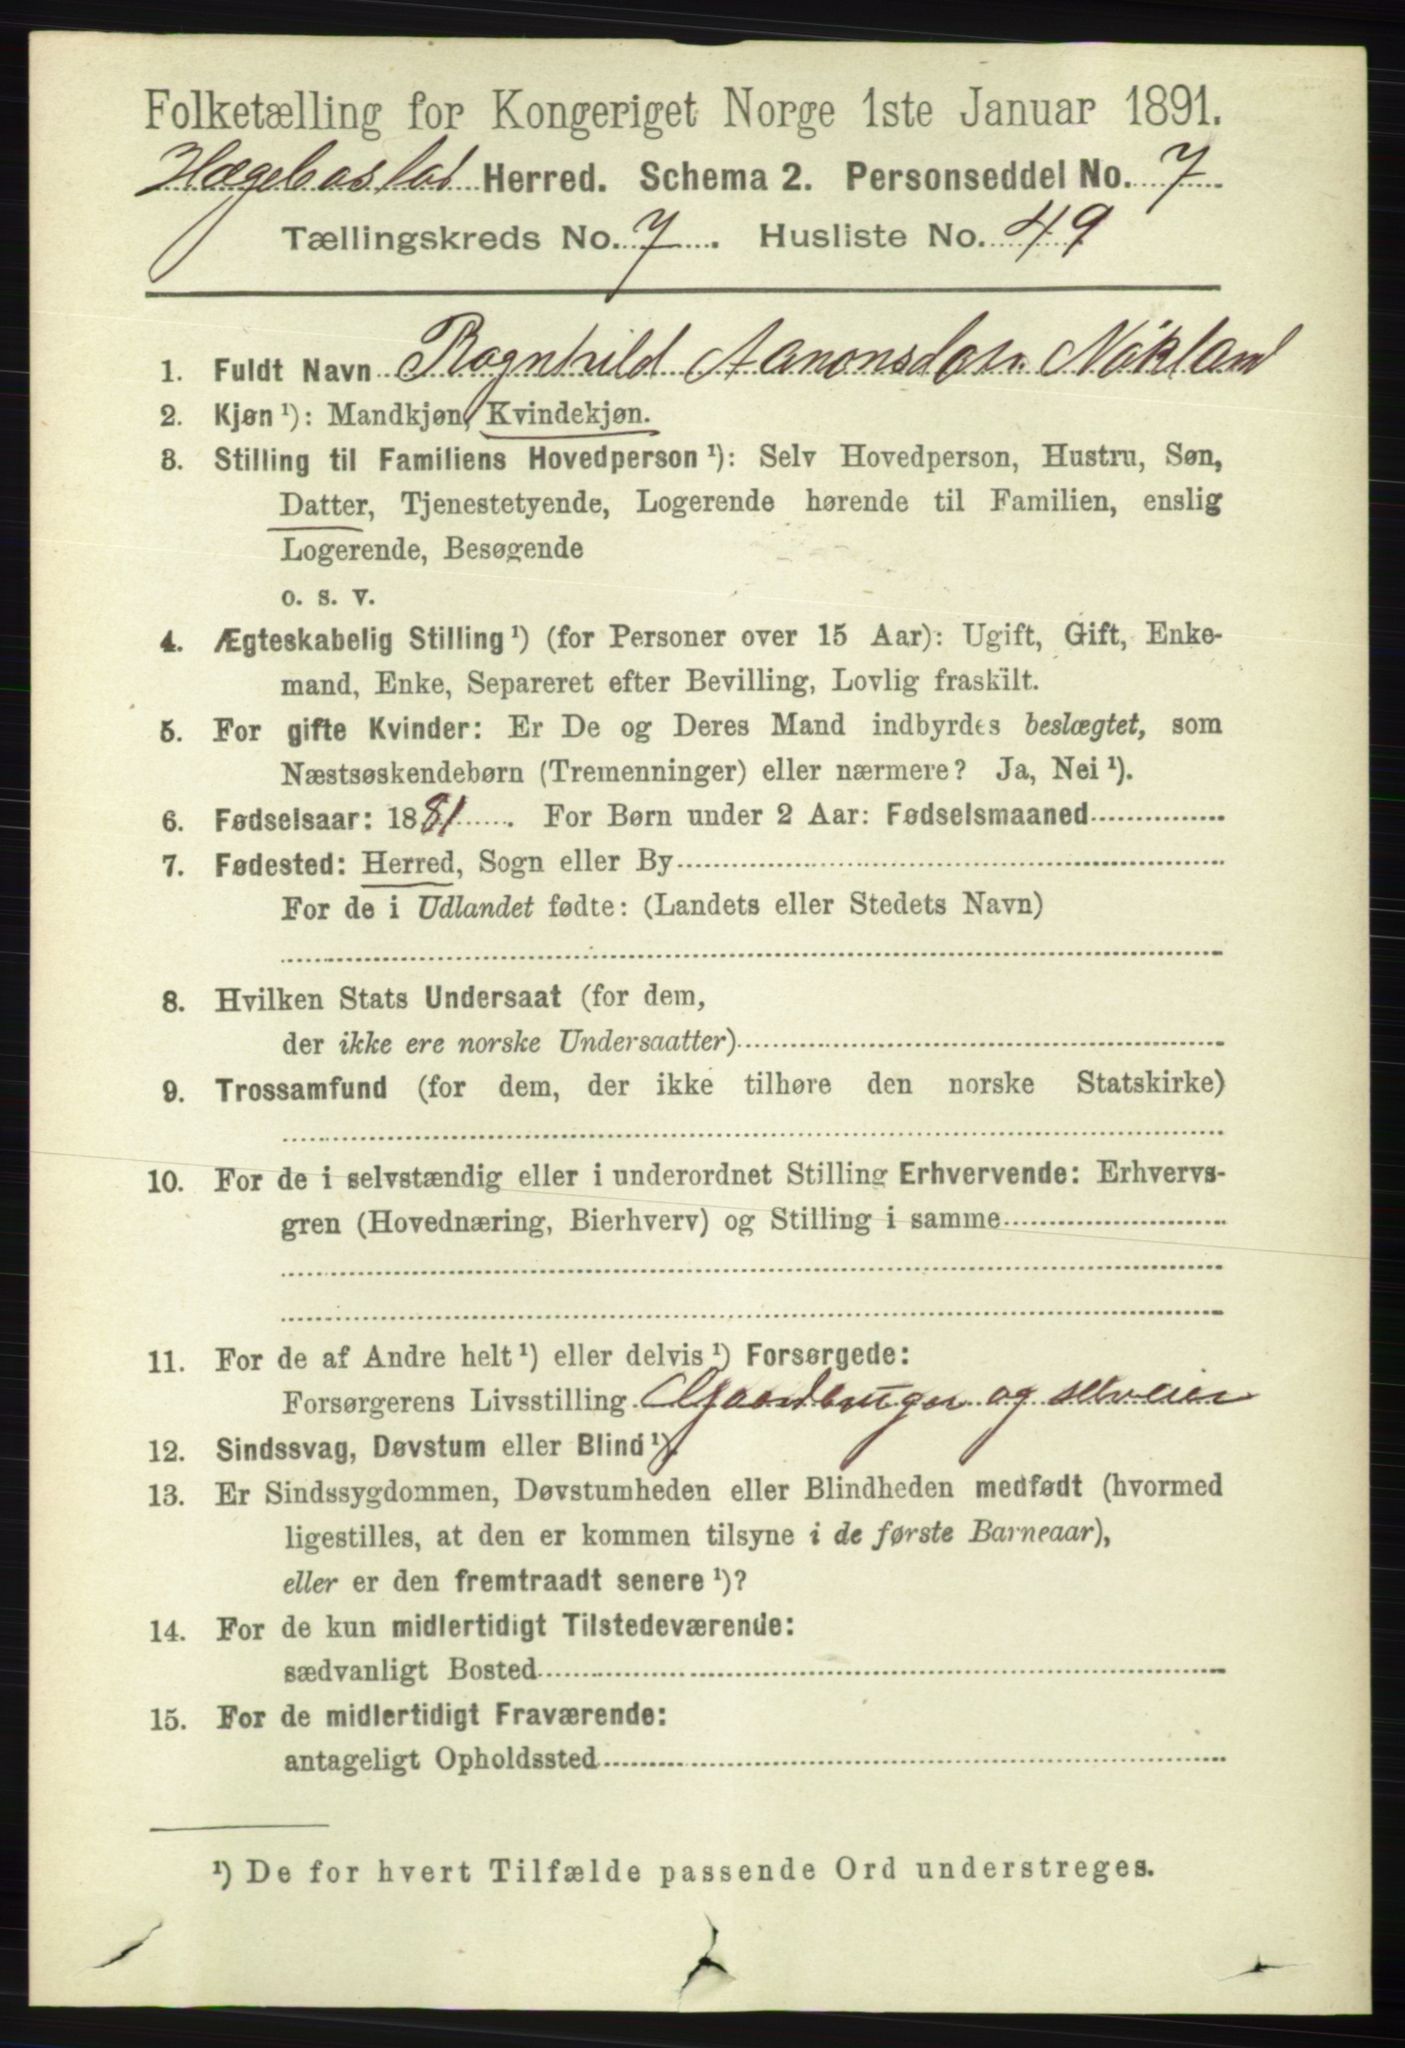 Folketælling for Kongeriget Norge 1ste Januar 1891.
Hægebostad Herred. Schema 2. Personseddel No. 7
Tællingskreds No. 7. Husliste No. 49
1. Fuldt Navn Ragnhild Aanonsdatr. Nökland
2. Kjøn ¹): Mandkjøn, Kvindekjøn.
3. Stilling til Familiens Hovedperson ¹): Selv Hovedperson, Hustru, Søn,
Datter, Tjenestetyende, Logerende hørende til Familien, enslig
Logerende, Besøgende
o. s. v.
4. Ægteskabelig Stilling ¹) (for Personer over 15 Aar): Ugift, Gift, Enke-
mand, Enke, Separeret efter Bevilling, Lovlig fraskilt.
5. For gifte Kvinder: Er De og Deres Mand indbyrdes beslægtet, som
Næstsøskendebørn (Tremenninger) eller nærmere? Ja, Nei ¹).
6. Fødselsaar: 1881. For Børn under 2 Aar: Fødselsmaaned
7. Fødested: Herred, Sogn eller By
For de i Udlandet fødte: (Landets eller Stedets Navn)
8. Hvilken Stats Undersaat (for dem,
der ikke ere norske Undersaatter)
9. Trossamfund (for dem, der ikke tilhøre den norske Statskirke)
10. For de i selvstændig eller i underordnet Stilling Erhvervende: Erhvervs-
gren (Hovednæring, Bierhverv) og Stilling i samme
11. For de af Andre helt ¹) eller delvis ¹) Forsørgede:
Forsørgerens Livsstilling Gaardbruger og selveier
12. Sindssvag, Døvstum eller Blind ¹).
13. Er Sindssygdommen, Døvstumheden eller Blindheden medfødt (hvormed
ligestilles, at den er kommen tilsyne i de første Barneaar),
eller er den fremtraadt senere ¹)?
14. For de kun midlertidigt Tilstedeværende:
sædvanligt Bosted
15. For de midlertidigt Fraværende:
antageligt Opholdssted
¹) De for hvert Tilfælde passende Ord understreges.